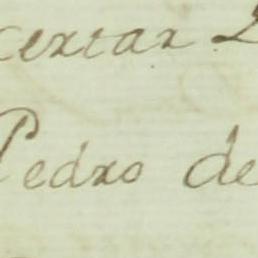 certar
Pedro de